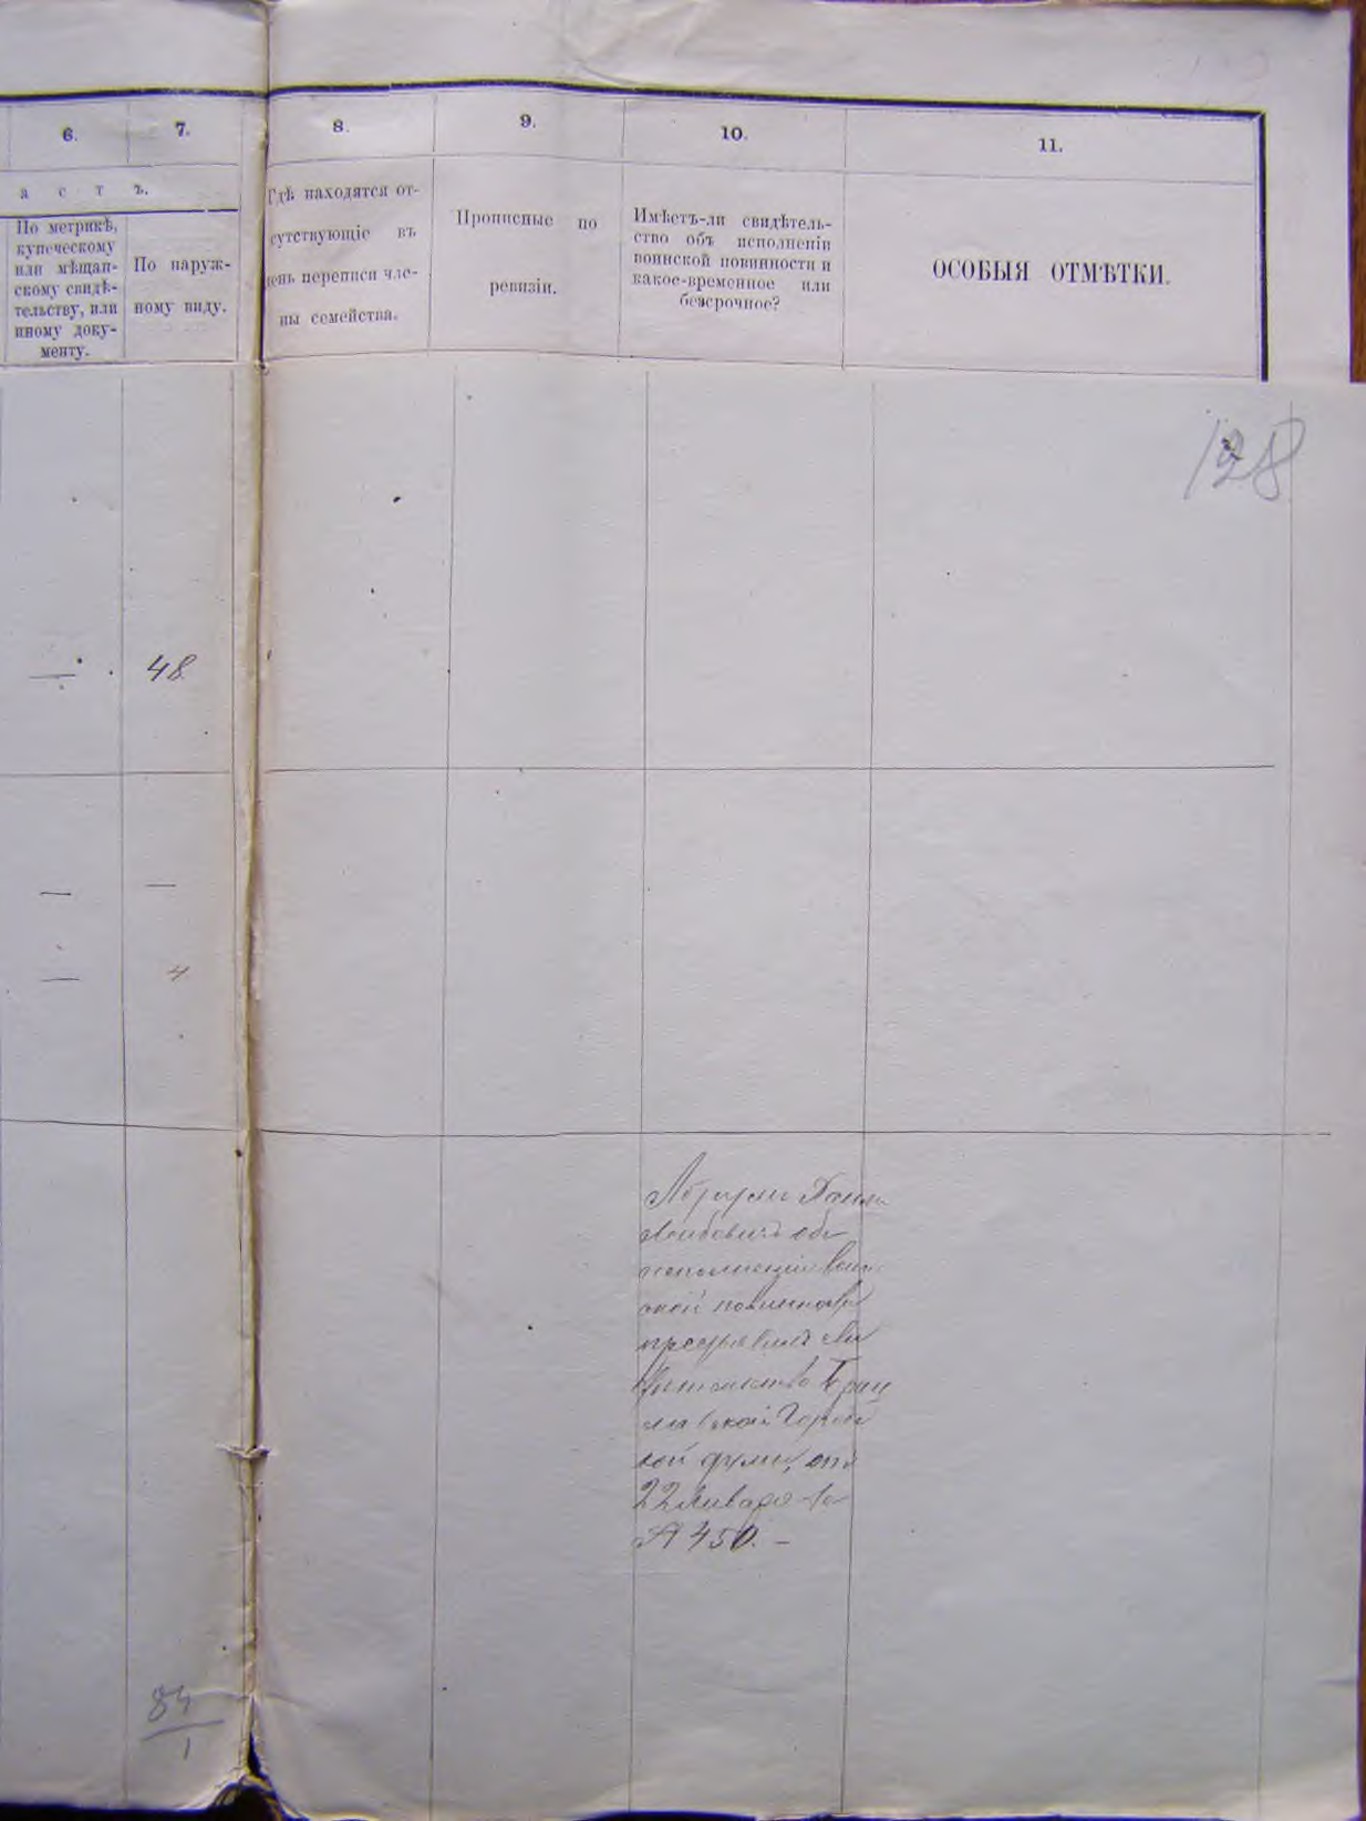 6.
7.
8.
9.
10.
11.
а с т ъ.
По метрикѣ,
купеческому
или мѣщан-
скому свидѣ-
тельству, или
иному доку-
менту.
По наруж-
ному виду.
Гдѣ находятся от-
сутствующіе въ
день переписи чле-
ны семейства.
Прописные по
ревизіи.
Имѣетъ-ли свидѣтель-
ство объ исполненіи
воинской повинности и
какое-временное или
безсрочное?
ОСОБЫЯ ОТМѢТКИ.
128
— 48
— —
— 4
объ
исполненіи воин
ской повинности
представилъ сви
дѣтельство
Город
ской думы, отъ
22 Января
№ 450. –
84
1